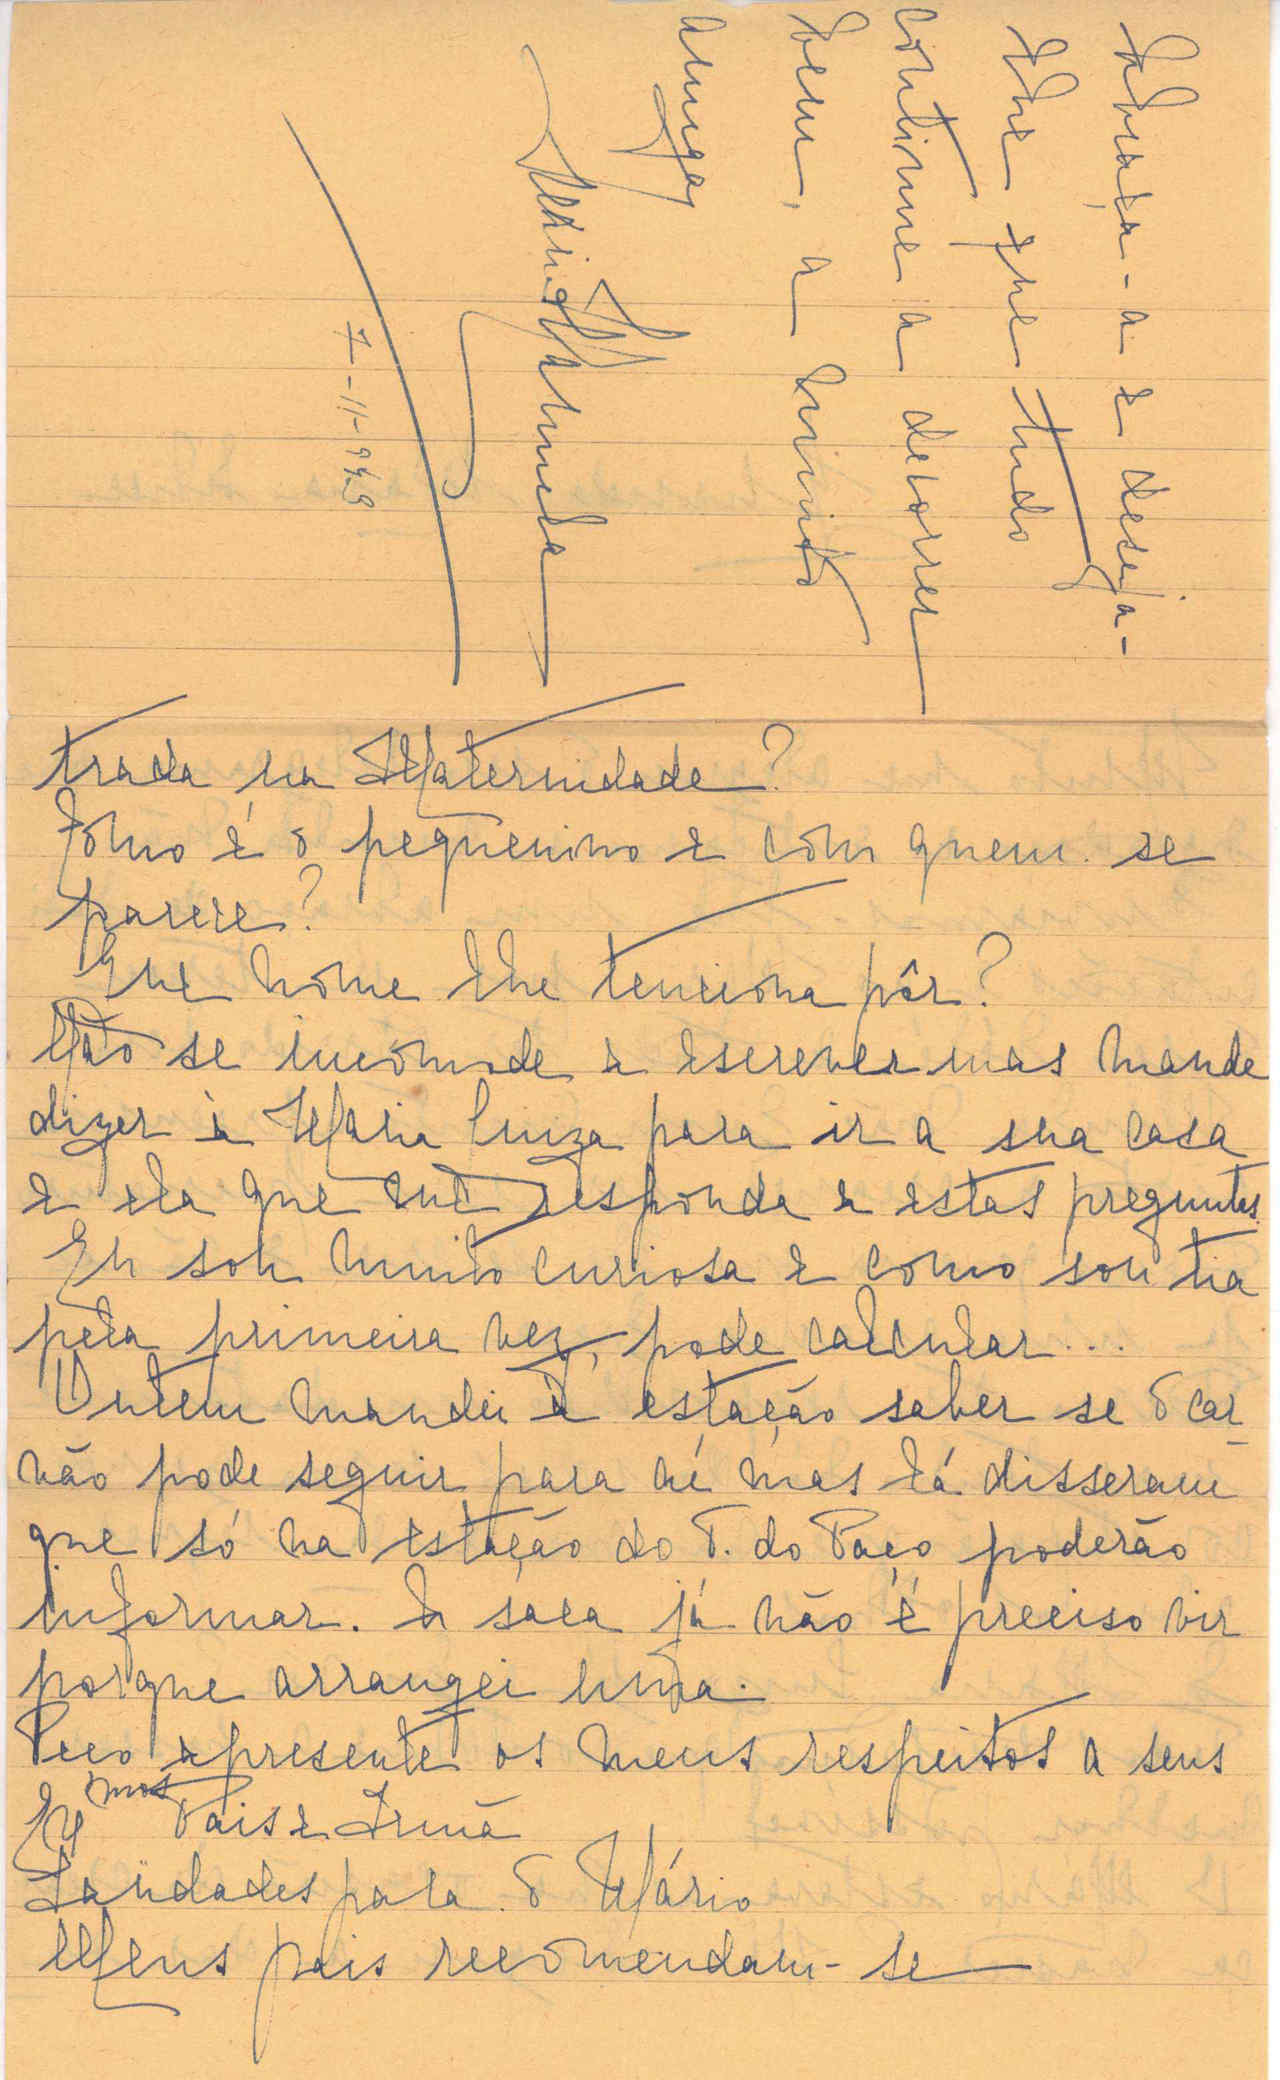 trada na Maternidade?
Como é o pequenino e com quem se
parece?
Que nome lhe tenciona pôr?
Não se incomode a escrever mas mande
dizer à Maria Luiza para ir a sua casa
e ela que me responda a estas preguntas.
Eu sou muito curiosa e como sou tia
pela primeira vez, pode calcular...
Ontem mandei à estação saber se o car
vão pode seguir para aí mas lá disseram
que só na estação do T. do Paço poderão
informar. A saca já não é preciso vir
porque arrangei uma.
Peço apresente os meus respeitos a seus
Ex.mos Pais e Irmã
Saüdades para o Mário
Meus pais recomendam-se
Abraça-a e deseja-
lhe que tudo
continue a decorrer
bem, a muito
amiga
7-11-949